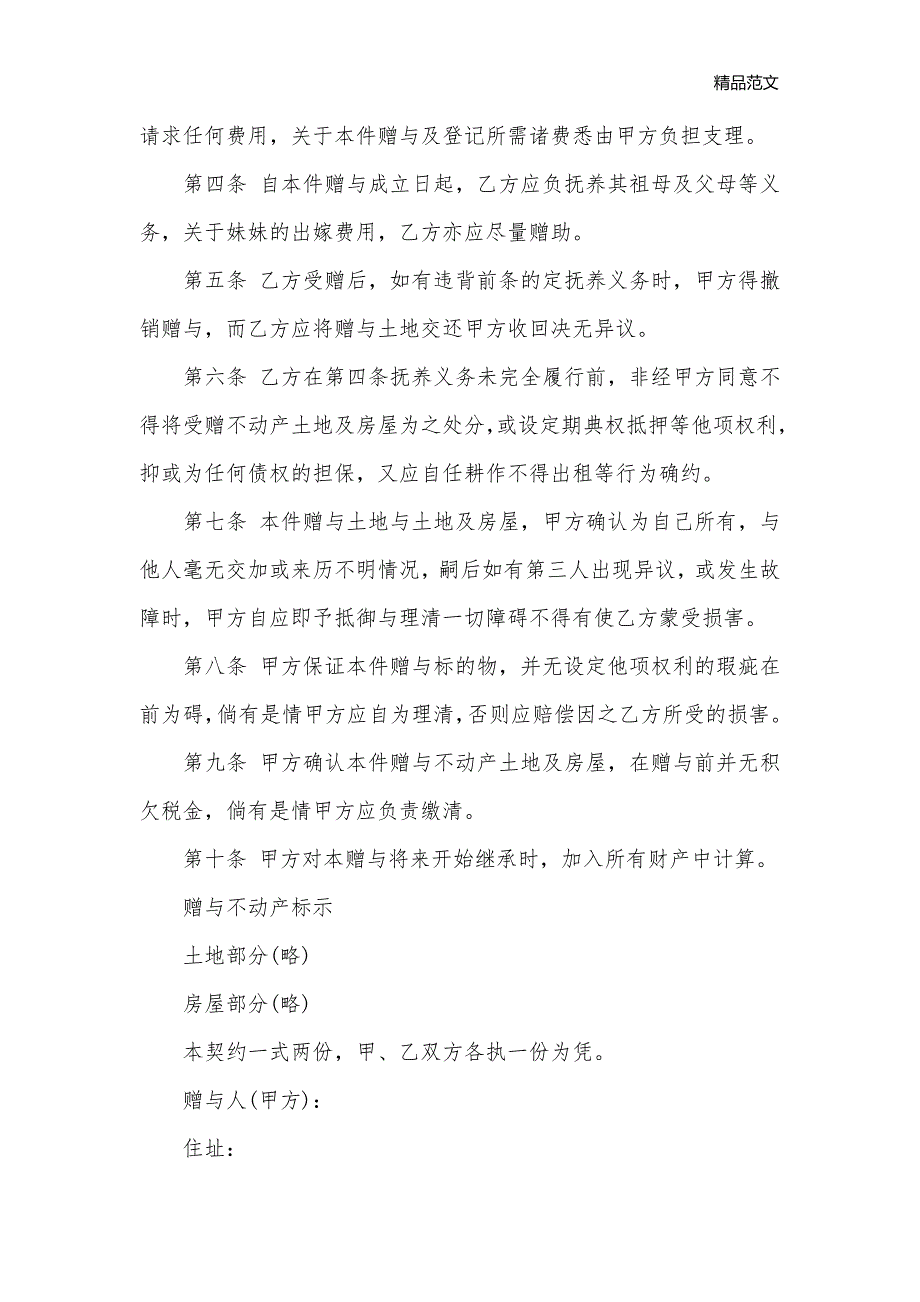 精品范文
请求任何费用，关于本件赠与及登记所需诸费悉由甲方负担支理。
第四条 自本件赠与成立日起，乙方应负抚养其祖母及父母等义
务，关于妹妹的出嫁费用，乙方亦应尽量赠助。
第五条 乙方受赠后，如有违背前条的定抚养义务时，甲方得撤
销赠与，而乙方应将赠与土地交还甲方收回决无异议。
第六条 乙方在第四条抚养义务未完全履行前，非经甲方同意不
得将受赠不动产土地及房屋为之处分，或设定期典权抵押等他项权利，
抑或为任何债权的担保，又应自任耕作不得出租等行为确约。
第七条 本件赠与土地与土地及房屋，甲方确认为自己所有，与
他人毫无交加或来历不明情况，嗣后如有第三人出现异议，或发生故
障时，甲方自应即予抵御与理清一切障碍不得有使乙方蒙受损害。
第八条 甲方保证本件赠与标的物，并无设定他项权利的瑕疵在
前为碍，倘有是情甲方应自为理清，否则应赔偿因之乙方所受的损害。
第九条 甲方确认本件赠与不动产土地及房屋，在赠与前并无积
欠税金，倘有是情甲方应负责缴清。
第十条 甲方对本赠与将来开始继承时，加入所有财产中计算。
赠与不动产标示
土地部分(略)
房屋部分(略)
本契约一式两份，甲、乙双方各执一份为凭。
赠与人(甲方)：
住址：